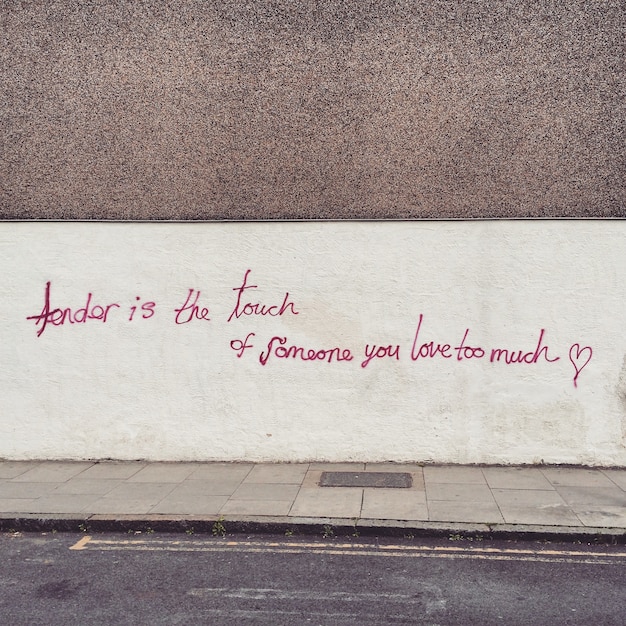 tender is the touch
of someone you love too much